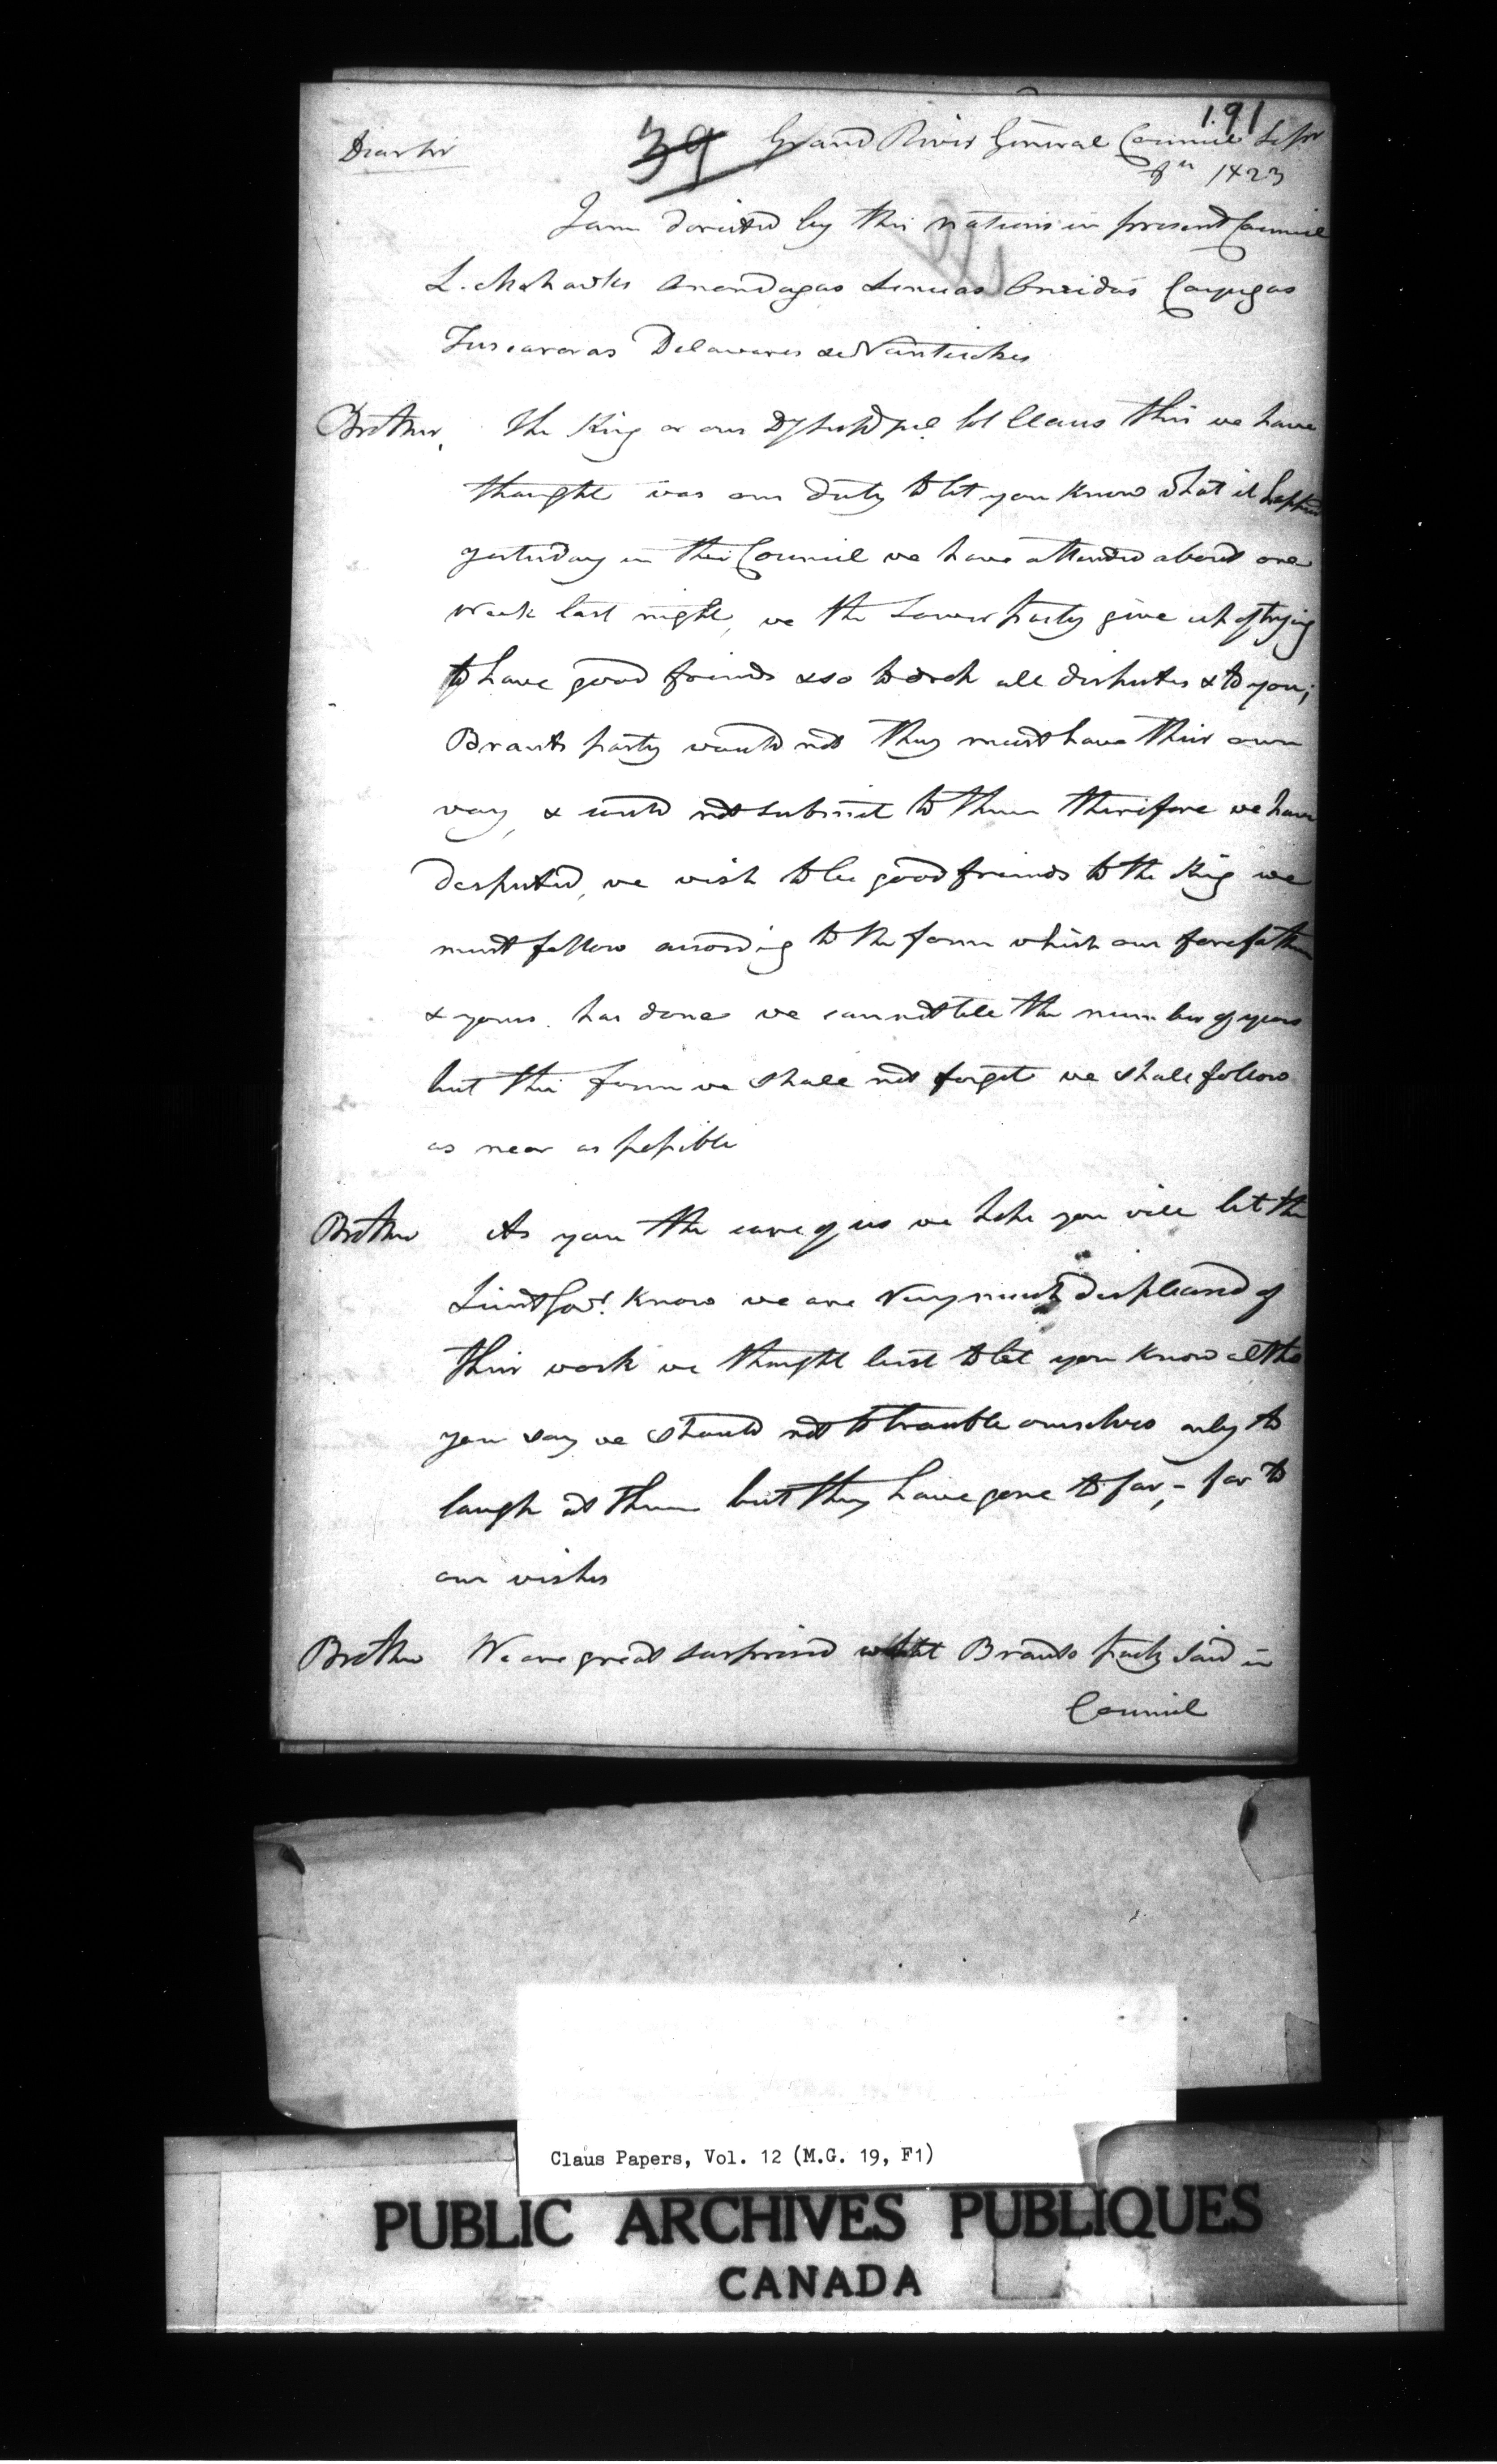 191
Dear Sir
39 Grand River General Council Sepr
8th 1823
I am dericted by this nations in present Council
L. Mohawks Onondagas Senecas Oneidas Cayugas
Tuscaroras Delawares & Nantickes
Brother, The King or our Dy Col Claus this we have
thought was our duty to let you know what it
yesterday in this Council we have attended about one
week last night, we the Lower party give up of trying
to have good friends & so to all disputes & to you;
Brants party would not They must have their own
way, & would not submit to them therefore we have
desputed, we wish to be good friends to the King we
must follow according to the form which our forefathers
& yours. has done we cannot tell the number of years
but this form we shall not forget we shall follow
as near as possible
Brother As you the care of us we hope you will let the
Lieut Govr. Know we are Very much displeased of
their work we thought best to let you know altho
you say we should not to trouble ourselves only to
laugh at them but they have gone to far, - far to
our wishes
Brother We are great surprised what Brants party said in
Council
Claus Papers, Vol. 12 (M.G. 19, F1)
PUBLIC ARCHIVES PUBLIQUES
CANADA